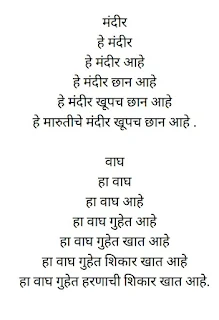 मंदीर
हे मंदीर
हे मंदीर आहे
हे मंदीर छान आहे
हे मंदीर खूपच छान आहे
हे मारुतीचे मंदीर खूपच छान आहे .
वाघ
हा वाघ
हा वाघ आहे
हा वाघ गुहेत आहे
हा वाघ गुहेत खात आहे
हा वाघ गुहेत शिकार खात आहे
हा वाघ गुहेत हरणाची शिकार खात आहे.